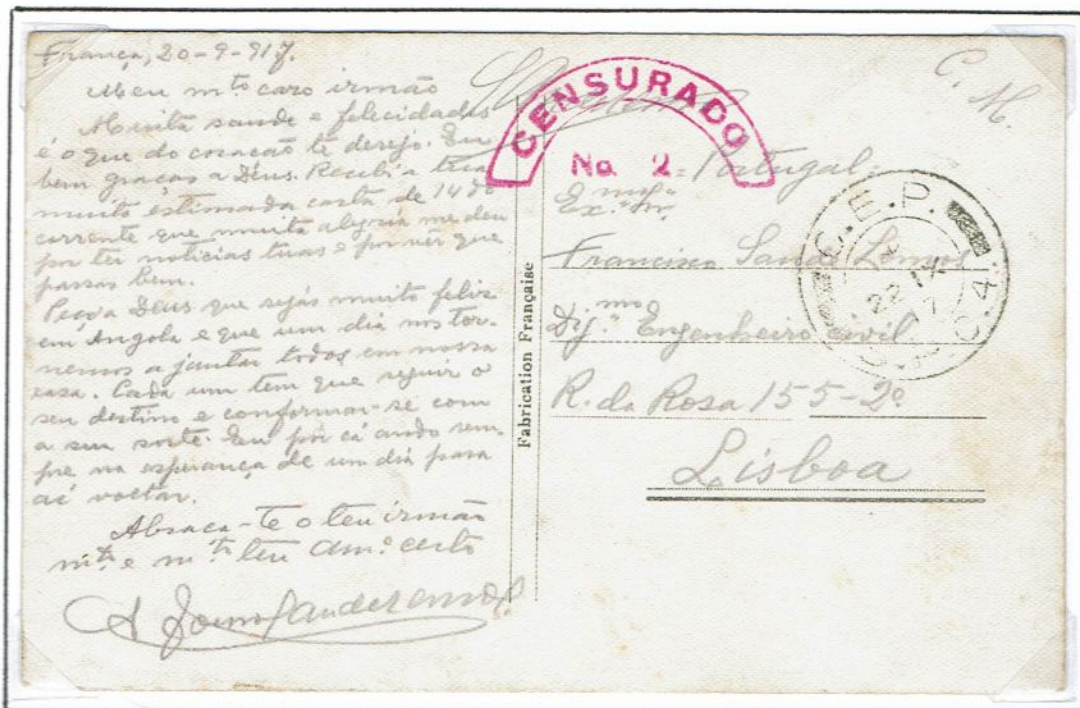 França, 20-9-917.
Meu m.to caro irmão
Muita saude e felicidades
é o que do coração te desejo. Eu
bem graças a Deus. Recebi a tua
muito estimada carta de 14 do
corrente que muita alegria me deu
por ter noticias tuas e por vêr que
passas bem.
Peço a Deus que sejas muito feliz
em Angola e que um dia nos tor-
nemos a jantar todos em nossa
casa. Cada um tem que seguir o
seu destino e conformar-se com
a sua sorte. Eu por cá ando sem-
pre na esperança de um dia para
aí voltar.
Abraça-te o teu irmão
m.to e m.to teu am.o certo
Fabrication Française
CENSURADO
No. 2
C. M.
Portugal
Ex.mo Sr.
Francisco Sande Lemos
Dig.mo Engenheiro civil
R. da Rosa 155-2º
Lisboa
C.E.P.
22 IX 17
C.4